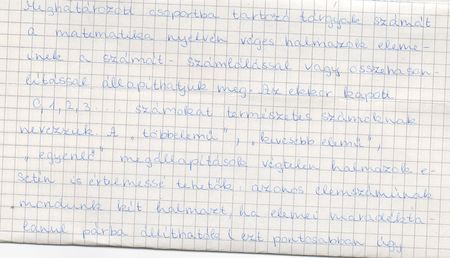 Meghatározott csoportba tartozó tárgyak számát
a matematika nyelvén véges halmazok eleme-
inek a számát - számlálással vagy összehason-
lítással állapíthatjuk meg. Az ekkor kapott
0, 1, 2, 3 ... számokat természetes számoknak
nevezzük. A „többelemű", „kevesebb elemű",
„egyenlő" megállapítások végtelen halmazok e-
setén is értelmessé tehetők, azonos elemszámúnak
mondunk két halmazt, ha elemei maradékta-
lanul párba állíthatók (ezt pontosabban úgy